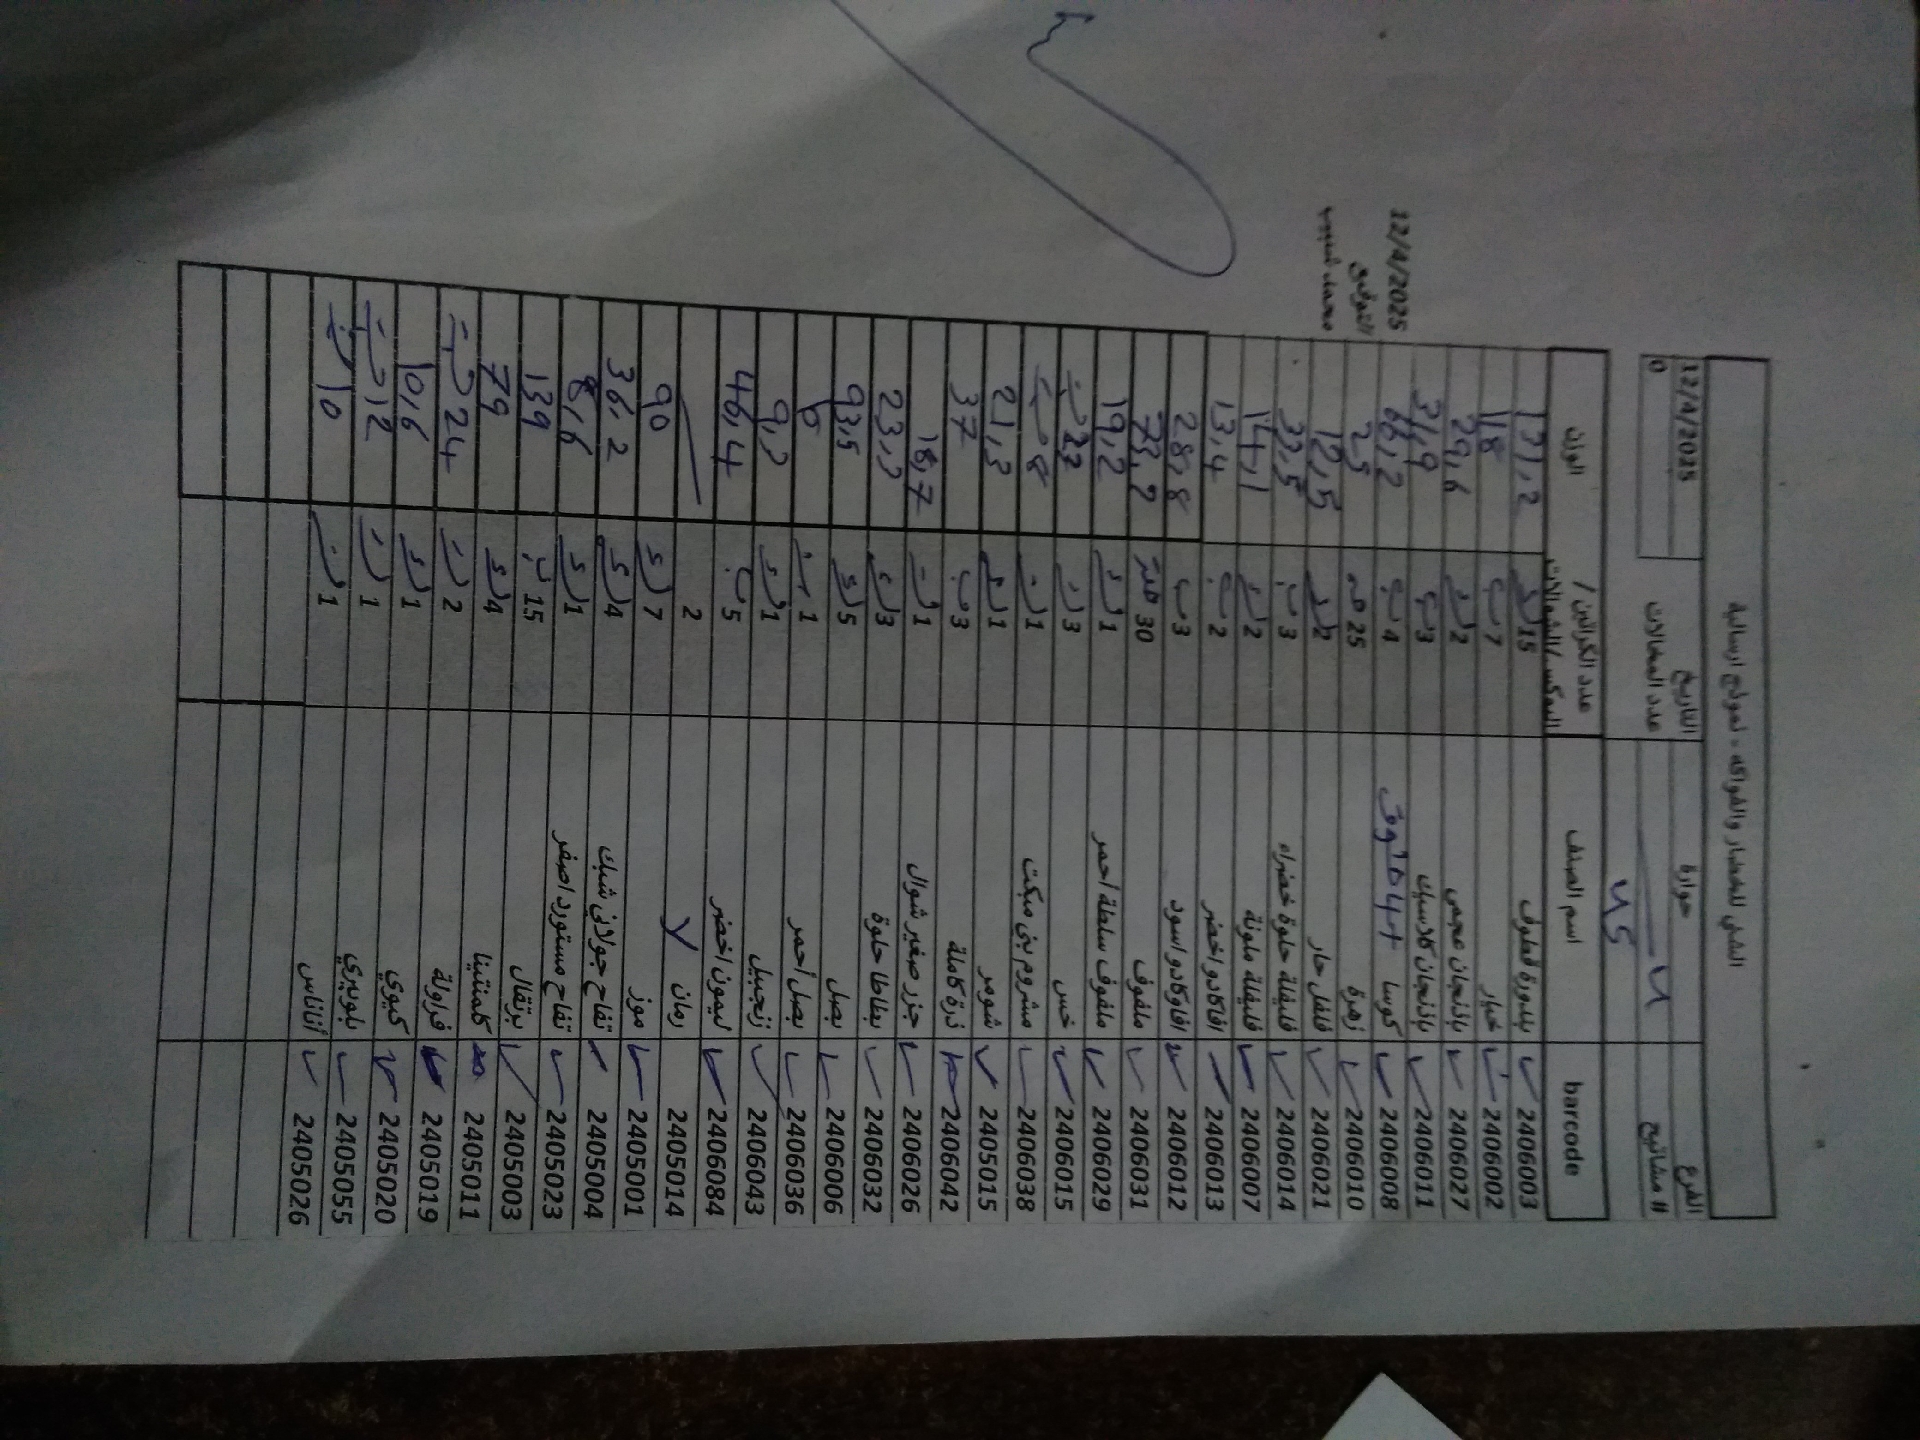 الشني للخضار والفواكه - نموذج ارسالية
الفرع حوارة التاريخ 12/4/2025
# مشاتيح عدد المحلات 0
barcode اسم الصنف عدد الكراتين / البوكس/الشوالات الوزن
2406003 بندورة قطوف 15 171,2
2406002 خيار 7 118
2406027 باذنجان عجمي 2 29,6
2406011 باذنجان كلاسيك 3 31,9
2406008 كوسا 4 66,2
2406010 زهرة 25 25
2406021 فلفل حار 2 12,5
2406014 فليفلة حلوة خضراء 3 33,5
2406007 فليفلة ملونة 2 14,1
2406013 افاكادو اخضر 2 13,4
2406012 افاوكادو اسود 3 28,8
2406031 ملفوف 30 73,2
2406029 ملفوف سلطة احمر 1 19,2
2406015 خس 3
2406038 مشروم بني مبكت 1 8
2405015 شومر 1 21,3
2406042 ذرة كاملة 3 37
2406026 جزر صغير شوال 1 18,7
2406032 بطاطا حلوة 3 23,3
2406006 بصل 5 93,5
2406036 بصل احمر 1
2406043 زنجبيل 1 9,3
2406084 ليمون اخضر 5 46,4
2405014 رمان 2
2405001 موز 7 90
2405004 تفاح جولاني شبك 4 36,2
2405023 تفاح مستورد اصفر 1 8,6
2405003 برتقال 15 139
2405011 كلمنتينا 4 79
2405019 فراولة 2 24
2405020 كيوي 1 10,6
2405055 بلوبيري 1 12
2405026 أناناس 1 10
12/4/2025
التوقيع